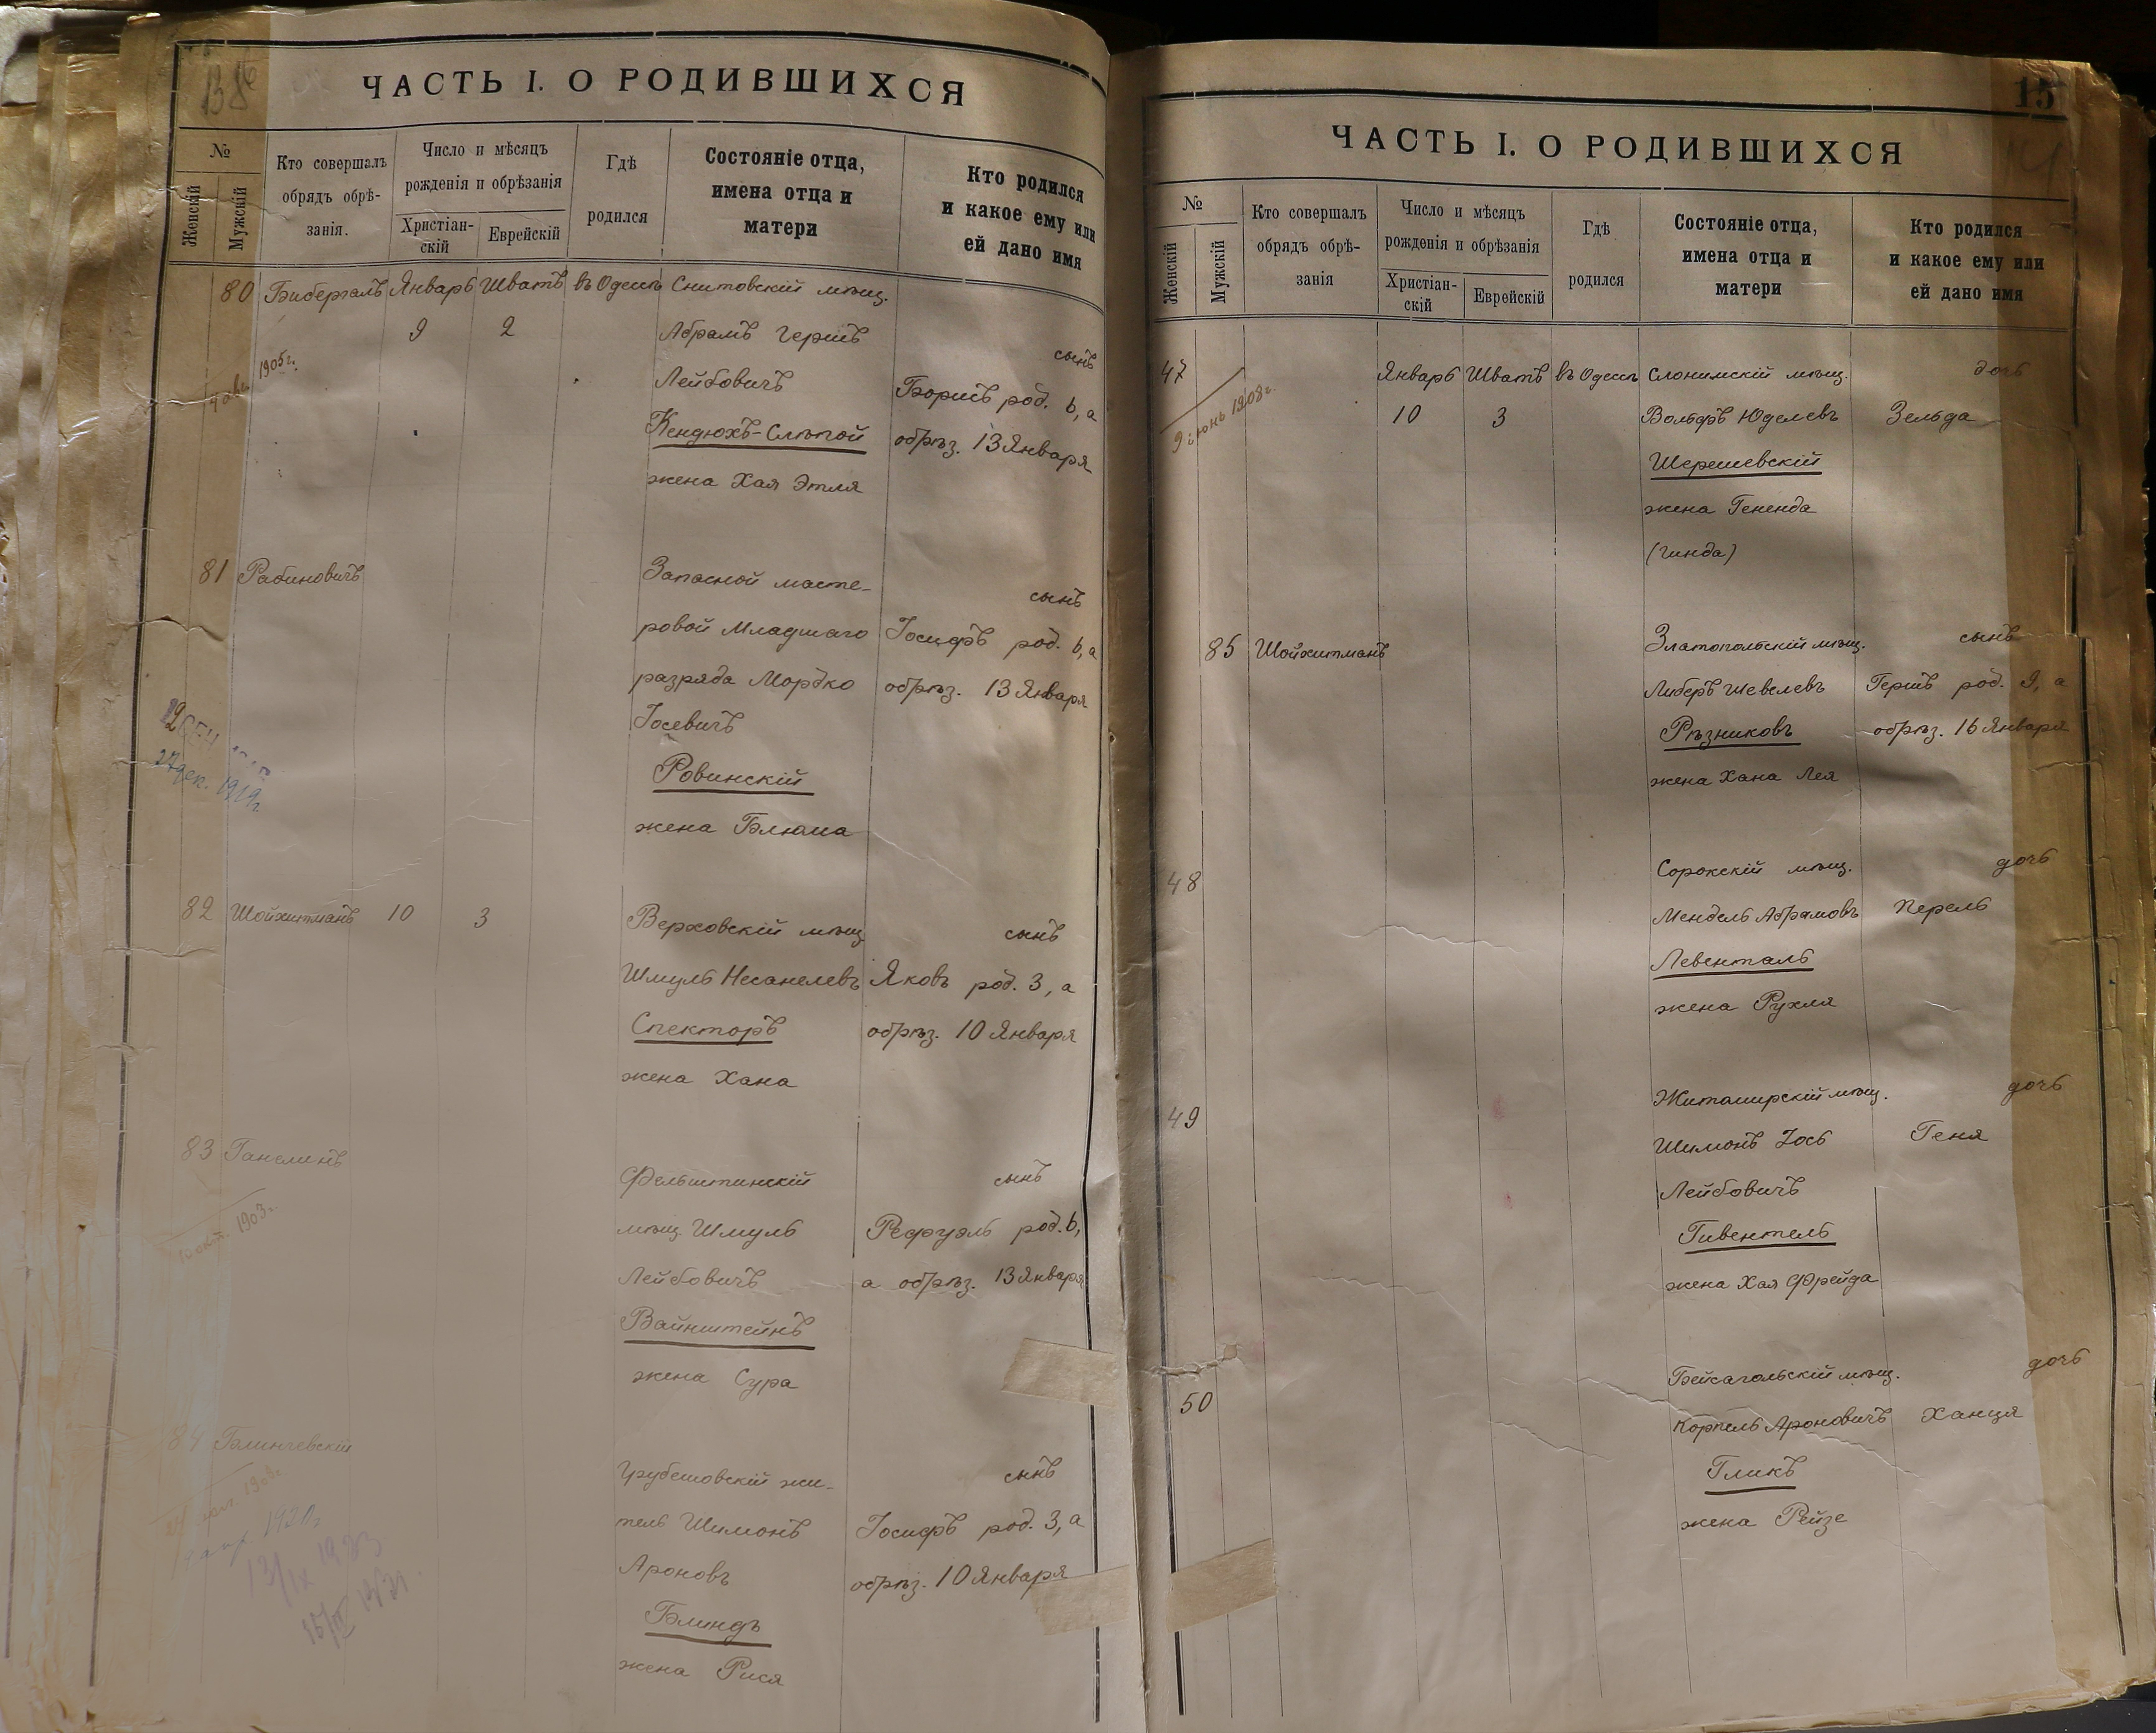 ЧАСТЬ I. О РОДИВШИХСЯ
№
Женскій
Мужскій
Кто совершалъ
обрядъ обрѣ-
занія.
Число и мѣсяцъ
рожденія и обрѣзанія
Христіан-
скій
Еврейскій
Гдѣ
родился
Состояніе отца,
имена отца и
матери
Кто родился
и какое ему или
ей дано имя
80 Бибергалъ Январь Шватъ въ Одессѣ Снитовскій мѣщ.
9 2 Абрамъ Гершъ сынъ
1905г.
Лейбовичъ Борисъ род. 6, а
Кендюхъ-Слѣпой обрѣз. 13 Января
жена Хая Этля
81 Рабиновичъ Запасной масте- сынъ
ровой Младшаго Іосифъ род. 6, а
разряда Мордко обрѣз. 13 Января
Іосевичъ
Ровинскій
27 дек. 1919г
жена Блюма
82 Шойхитманъ 10 3 Верховскій мѣщ сынъ
Шмуль Несанелевъ Яковъ род. 3, а
Спекторъ обрѣз. 10 Января
жена Хана
83 Ганелинъ Фельштинскій сынъ
мѣщ. Шмуль Рефуэль род. 6,
окт. 1903г.
Лейбовичъ а обрѣз. 13 Января
Вайнштейнъ
жена Сура
84 Блинчевскій Грубешовскій жи- сынъ
тель Шимонъ Іосифъ род. 3, а
1920г
Ароновъ обрѣз. 10 Января
Блиндъ
жена Рися
15
ЧАСТЬ I. О РОДИВШИХСЯ
№
Женскій
Мужскій
Кто совершалъ
обрядъ обрѣ-
занія
Число и мѣсяцъ
рожденія и обрѣзанія
Христіан-
скій
Еврейскій
Гдѣ
родился
Состояніе отца,
имена отца и
матери
Кто родился
и какое ему или
ей дано имя
47 Январь Шватъ въ Одессѣ Слонимскій мѣщ. дочь
9 іюнь 1908г.
10 3 Вольфъ Юделевъ Зельда
Шерешевскій
жена Гененда
(Гинда)
85 Шойхитманъ Златопольскій мѣщ. сынъ
Либеръ Шевелевъ Гершъ род. 9, а
Рѣзниковъ обрѣз. 16 Января
жена Хана Лея
48 Сорокскій мѣщ. дочь
Мендель Абрамовъ Перель
Левенталь
жена Рухля
49 Житомирскій мѣщ. дочь
Шимонъ Іось Геня
Лейбовичъ
Гивентель
жена Хая Фрейда
50 Бейсагольскій мѣщ. дочь
Корпель Ароновичъ Ханця
Гликъ
жена Рейзе